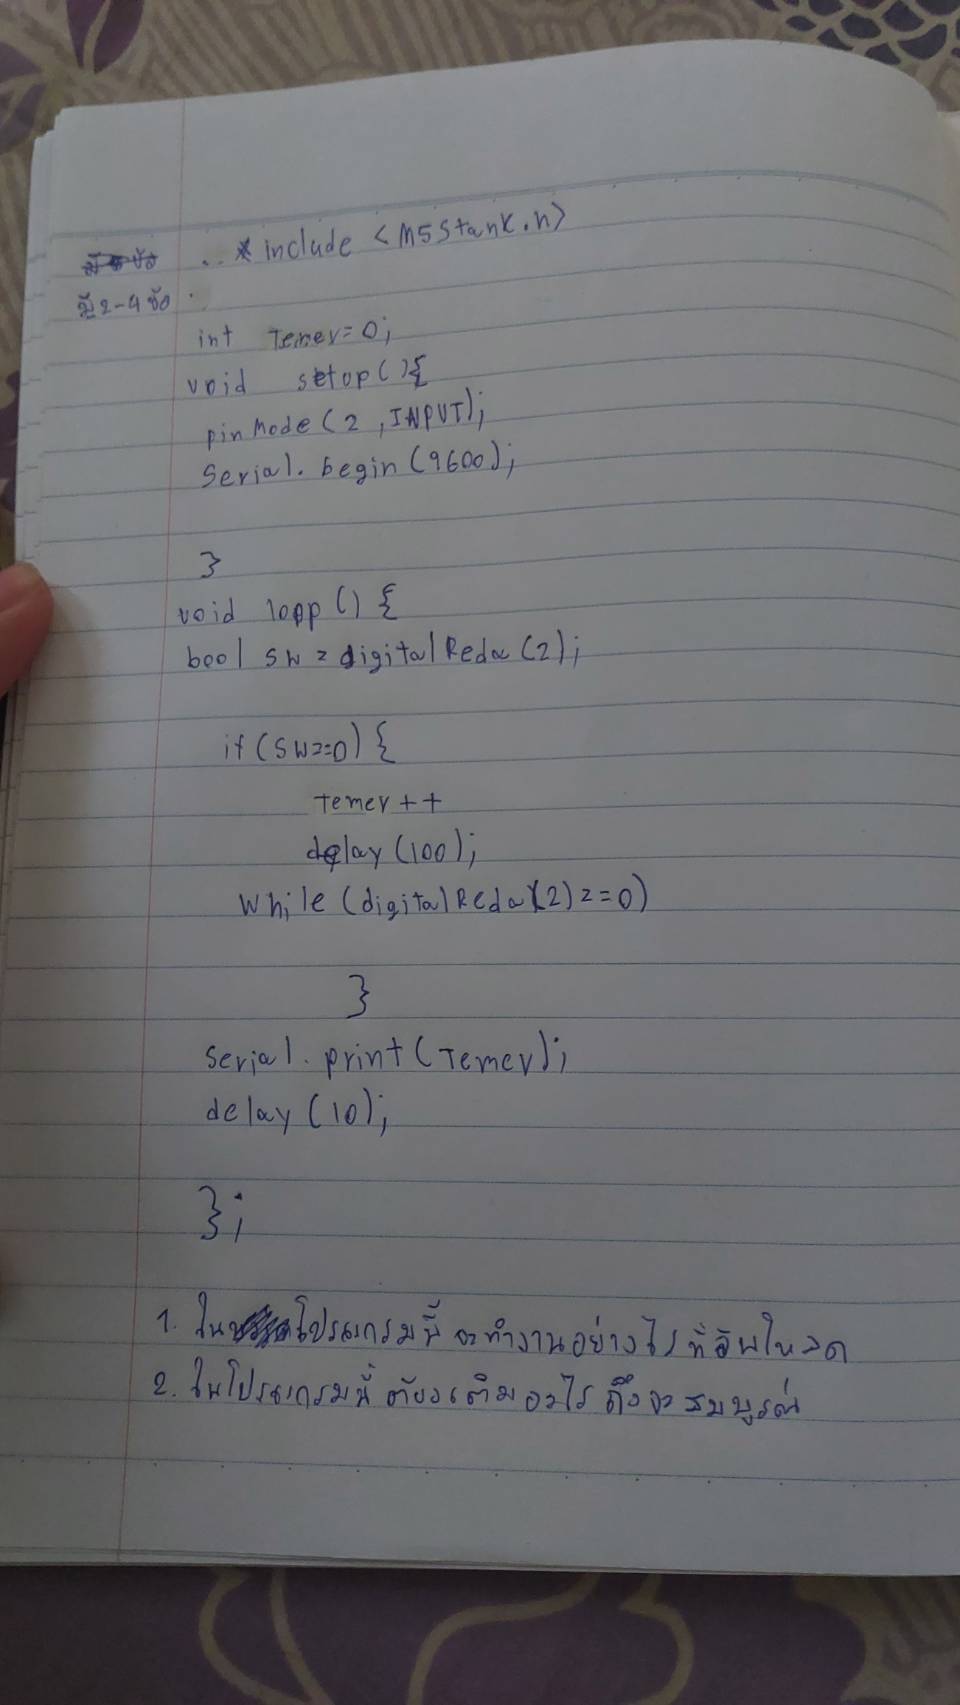 .. * include <M5Stank.h>
มี 2-4 ข้อ
int Temer=0;
void setop(){
pinMode(2,INPUT);
Serial.begin(9600);
}
void lopp() {
bool sw = digitalReda(2);
if(sw==0) {
Temer++
delay(100);
while(digitalReda(2)==0)
}
serial.print(Temer);
delay(10);
};
1. ในโปรแกรมนี้จะทำงานอย่างไรที่อัพโหลด
2. ในโปรแกรมนี้ต้องเติมอะไรถึงจะสมบูรณ์